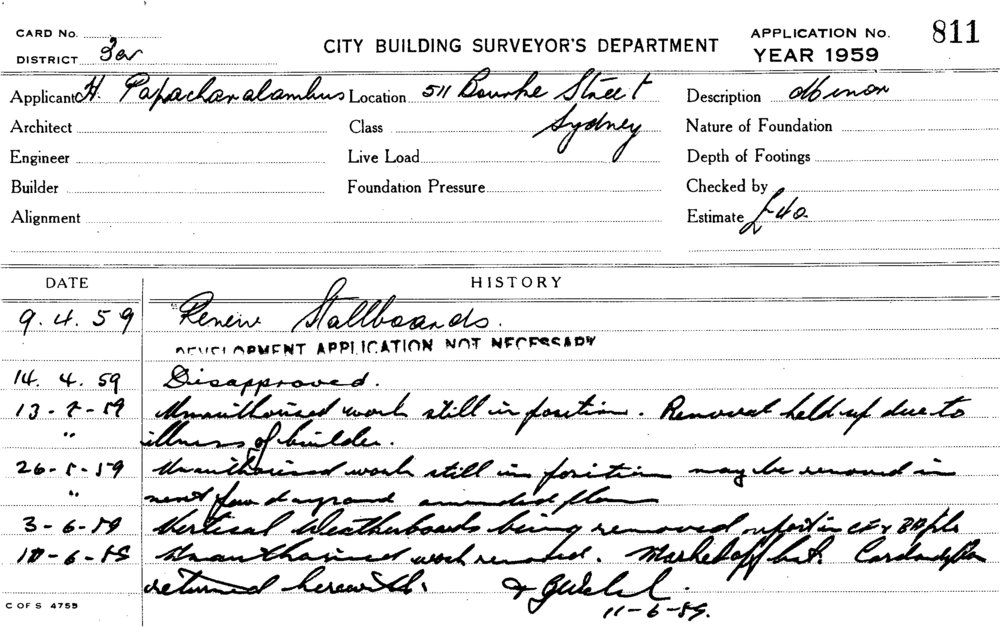 CARD No.
DISTRICT
CITY BUILDING SURVEYOR'S DEPARTMENT
APPLICATION No. 811
YEAR 1959
Applicant H. Papacharalambus Location 511 Bourke Street Description Minor
Architect Class Sydney Nature of Foundation
Engineer Live Load Depth of Footings
Builder Foundation Pressure Checked by
Alignment Estimate £40.
DATE HISTORY
9.4.59 "Renew Stallboards.
DEVELOPMENT APPLICATION NOT NECESSARY
14.4.59 Disapproved.
13-5-59 Unauthorised work still in position. Removal held up due to
" illness of builder.
26-5-59 Unauthorised work still in position may be removed in
" next few days and amended plan
3-6-59 Vertical Weatherboards being removed
10-6-59 Unauthorised work removed. Marked off
returned herewith.
11-6-59.
C OF S 4759